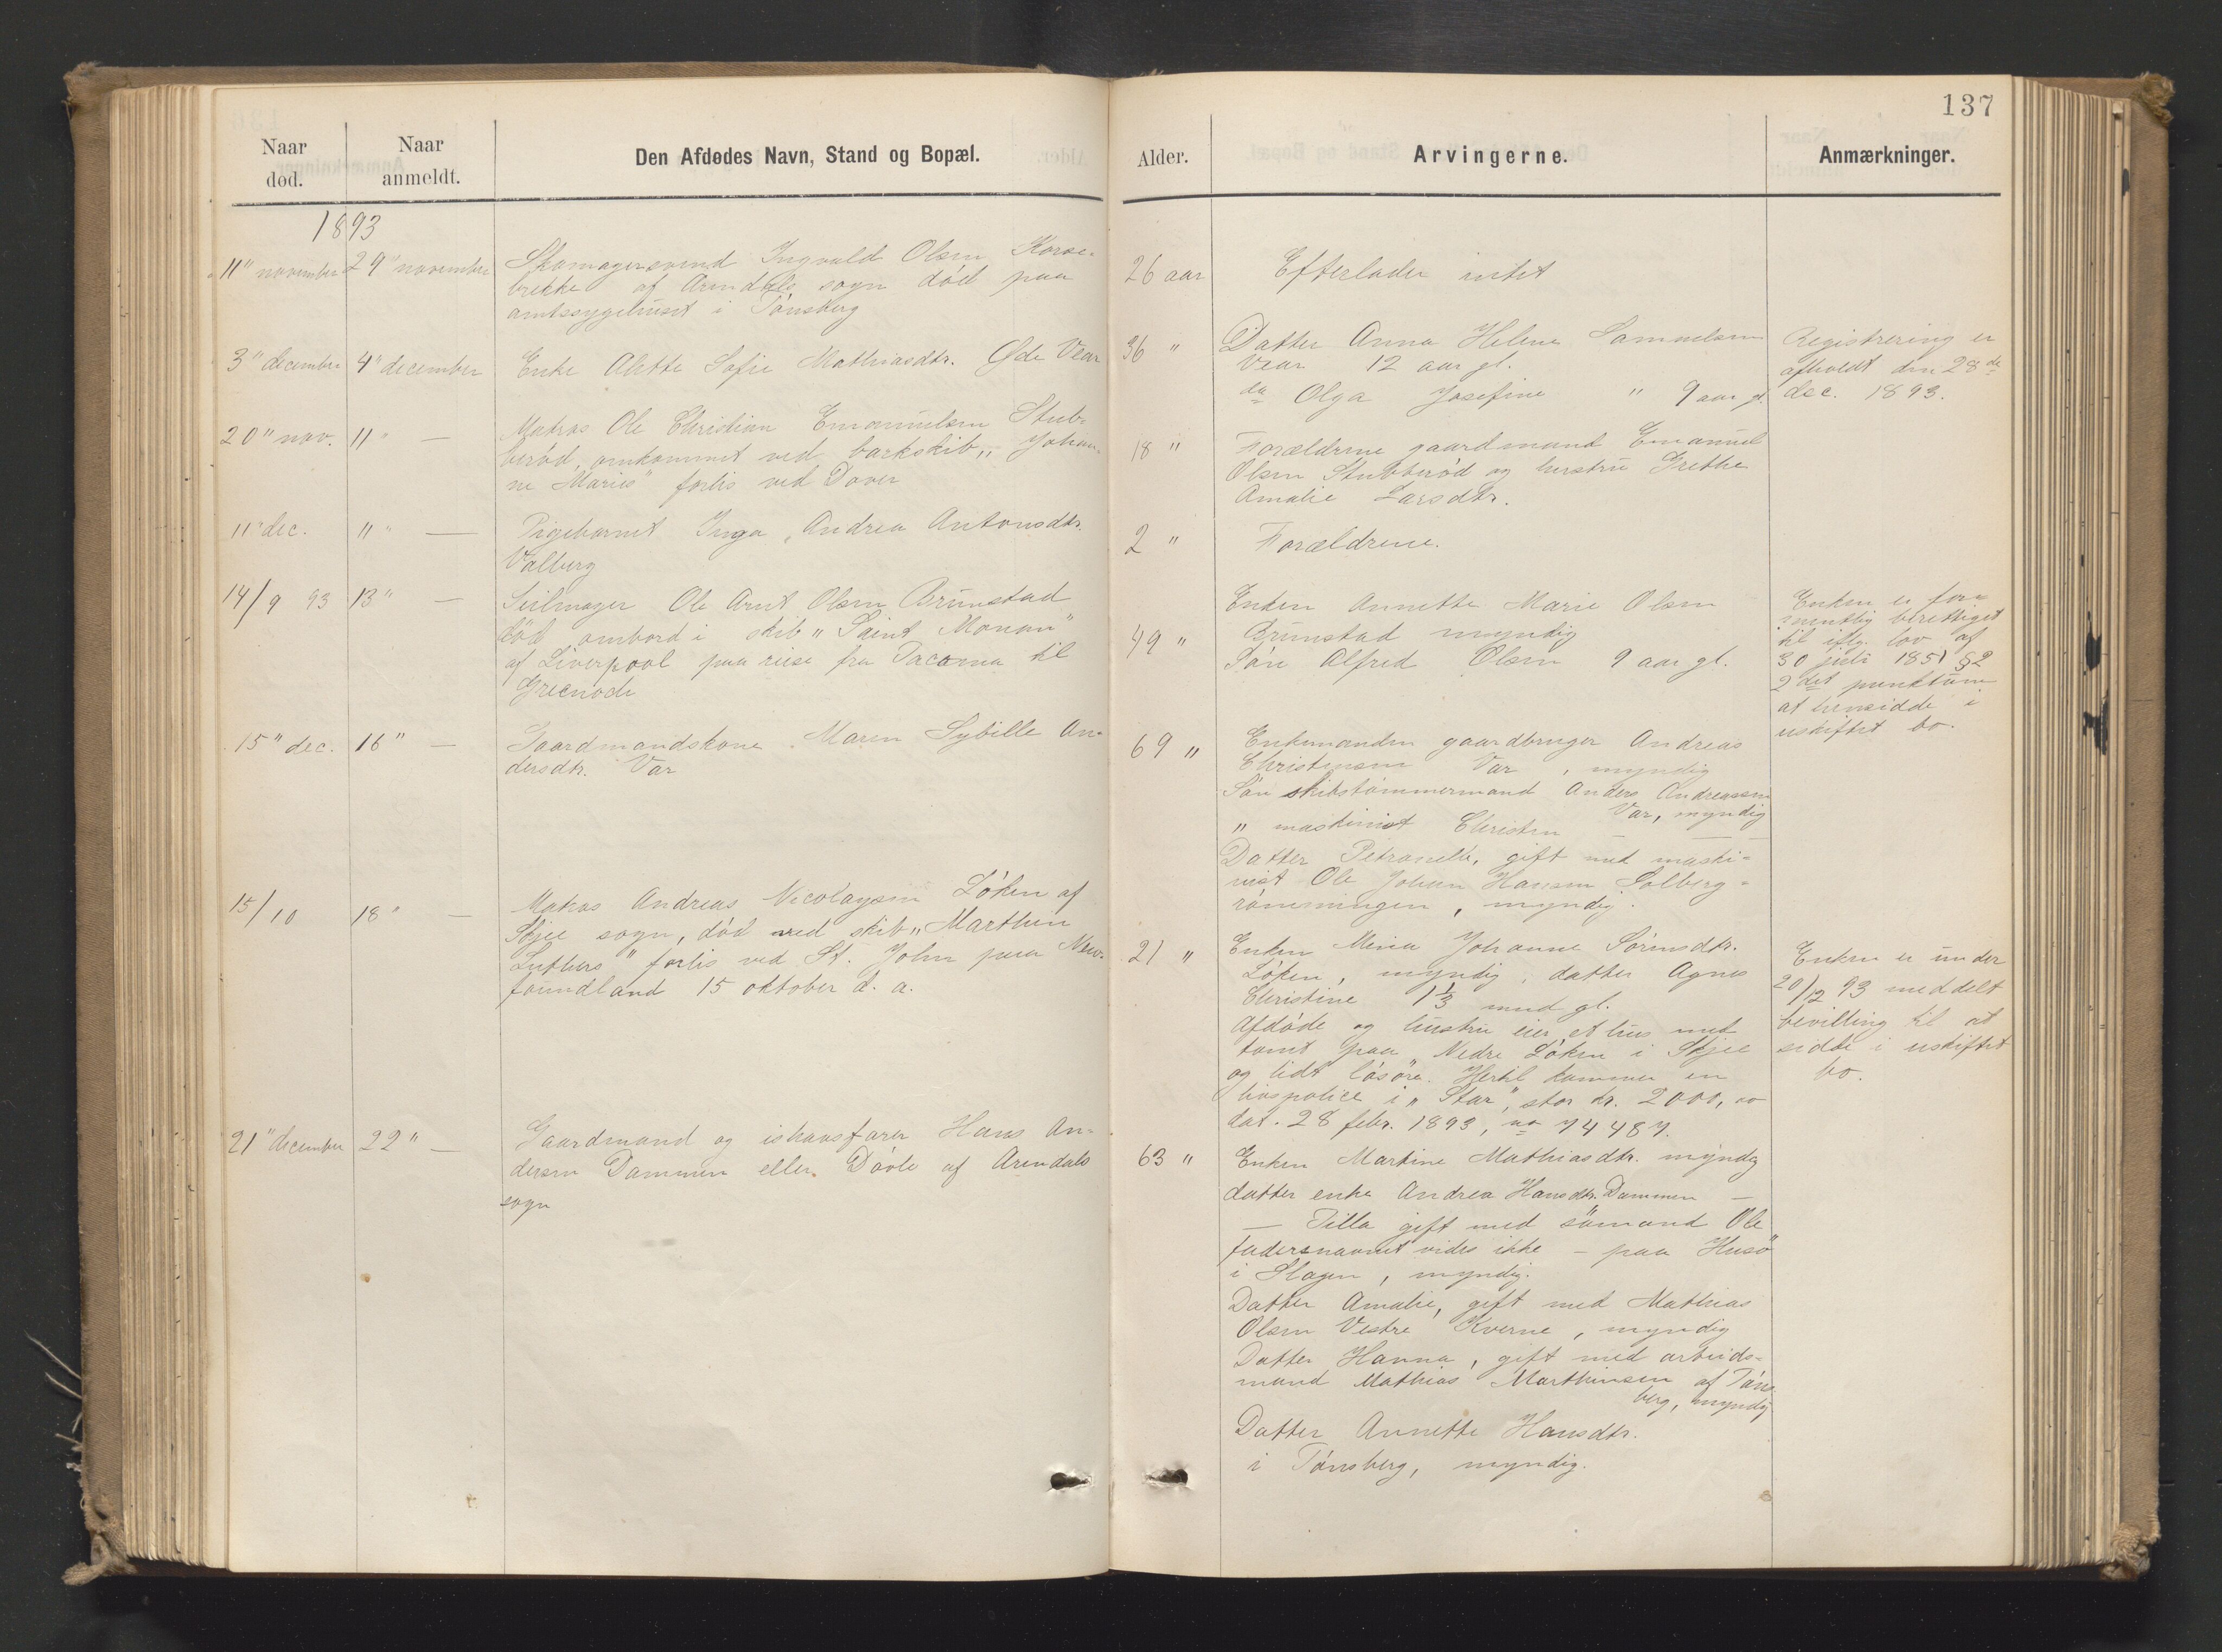 137
Naar død.
Naar anmeldt.
Den Afdødes Navn, Stand og Bopæl.
Alder.
Arvingerne.
Anmærkninger.
1893
11" november
29" november
Skomagersvend Ingvald Olsen Korse-
brekke af Arendals sogn død paa
amtssygehuset i Tønsberg
26 aar
Efterlader intet
3" december
4" december
Enke Alette Sofie Mathiasdtr. Øde Vear
36 "
Datter Anna Helene Samuelsen
Vear 12 aar gl.
do Olga Josefine " 9 aar gl.
Registrering er
afholdt den 28de
dec. 1893.
20" nov.
11" —
Matros Ole Christian Emanuelsen Stub-
berød, omkommet ved barkskib „Johan-
ne Marie" forlis ved Dover
18 "
Forældrene gaardmand Emanuel
Olsen Stubberød og hustru Grethe
Amalie Larsdtr.
11" dec.
11 " —
Pigebarnet Inga Andrea Antonsdtr.
Valberg
2 "
Forældrene.
14/9 93
13" —
Seilmager Ole Arnt Olsen Brunstad
død ombord i skib „Saint Monan"
af Liverpool paa reise fra Tacoma til
49 "
Enken Annette Marie Olsen
Brunstad myndig
Søn Alfred Olsen 9 aar gl.
Enken er for-
mentlig berettiget
til iflg. lov af
30 juli 1851 §2
2det punktum
at hensidde i
uskiftet bo.
15" dec.
16" —
Gaardmandskone Maren Sybille An-
dersdtr. Var
69 "
Enkemanden gaardbruger Andreas
Christensen Var, myndig
Søn skibstømmermand Anders Andreassen
Var, myndig
" maskinist Christen — —
Datter Petronelle, gift med maski-
nist Ole Johan Hansen Solberg-
rønningen, myndig.
15/10
18" —
Matros Andreas Nicolaysen Løken af
Skjee sogn, død ved skib „Marthin
Luthers" forlis ved St. John paa New-
foundland 15 oktober d. a.
21 "
Enken Mina Johanne Sørensdtr.
Løken, myndig, datter Agnes
Christine 1 1/3 mnd gl.
Afdøde og hustru eier et hus med
tomt paa Nedre Løken i Skjee
og lidt løsøre. Hertil kommer en
livspolice i „Star", stor kr. 2000,00
dat. 28 febr. 1893, no 74487.
Enken er under
20/12 93 meddelt
bevilling til at
sidde i uskiftet
bo.
21" december
22" —
Gaardmand og ishavsfarer Hans An-
dersen Dammen eller Døvle af Arendals
sogn
63 "
Enken Martine Mathiasdtr. myndig
datter enke Andrea Hansdtr. Dammen —
— Tilla gift med sømand Ole
fadersnavnet vides ikke — paa Husø
i Slagen, myndig.
Datter Amalie, gift med Mathias
Olsen Vestre Kverne, myndig
Datter Hanna, gift med arbeids-
mand Mathias Marthinsen af Tøns-
berg, myndig
Datter Annette Hansdtr.
i Tønsberg, myndig.